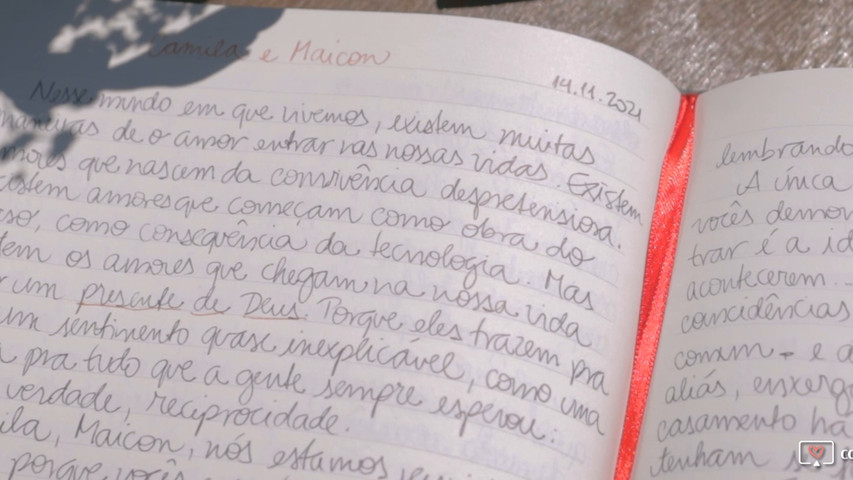 Camila e Maicon
14.11.2021
Nesse mundo em que vivemos, existem muitas
maneiras de o amor entrar nas nossas vidas. Existem
amores que nascem da convivência despretensiosa.
Existem amores que começam como obra do
como consequência da tecnologia. Mas
os amores que chegam na nossa vida
um presente de Deus. Porque eles trazem pra
um sentimento quase inexplicável, como uma
pra tudo que a gente sempre esperou:
verdade, reciprocidade.
Maicon, nós estamos
porque vocês
lembrando
A única
vocês
trar é a
acontecerem...
coincidências
comum - e a
aliás,
casamento
tenham